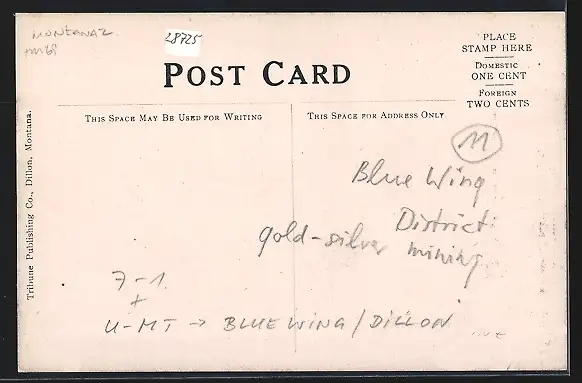 MONTANA 2
28725
POST CARD
PLACE
STAMP HERE
DOMESTIC
ONE CENT
FOREIGN
TWO CENTS
THIS SPACE MAY BE USED FOR WRITING
THIS SPACE FOR ADDRESS ONLY
11
Blue Wing
District
gold-silver mining
7-1
+
U-MT → BLUE WING / DILLON
Tribune Publishing Co., Dillon, Montana.